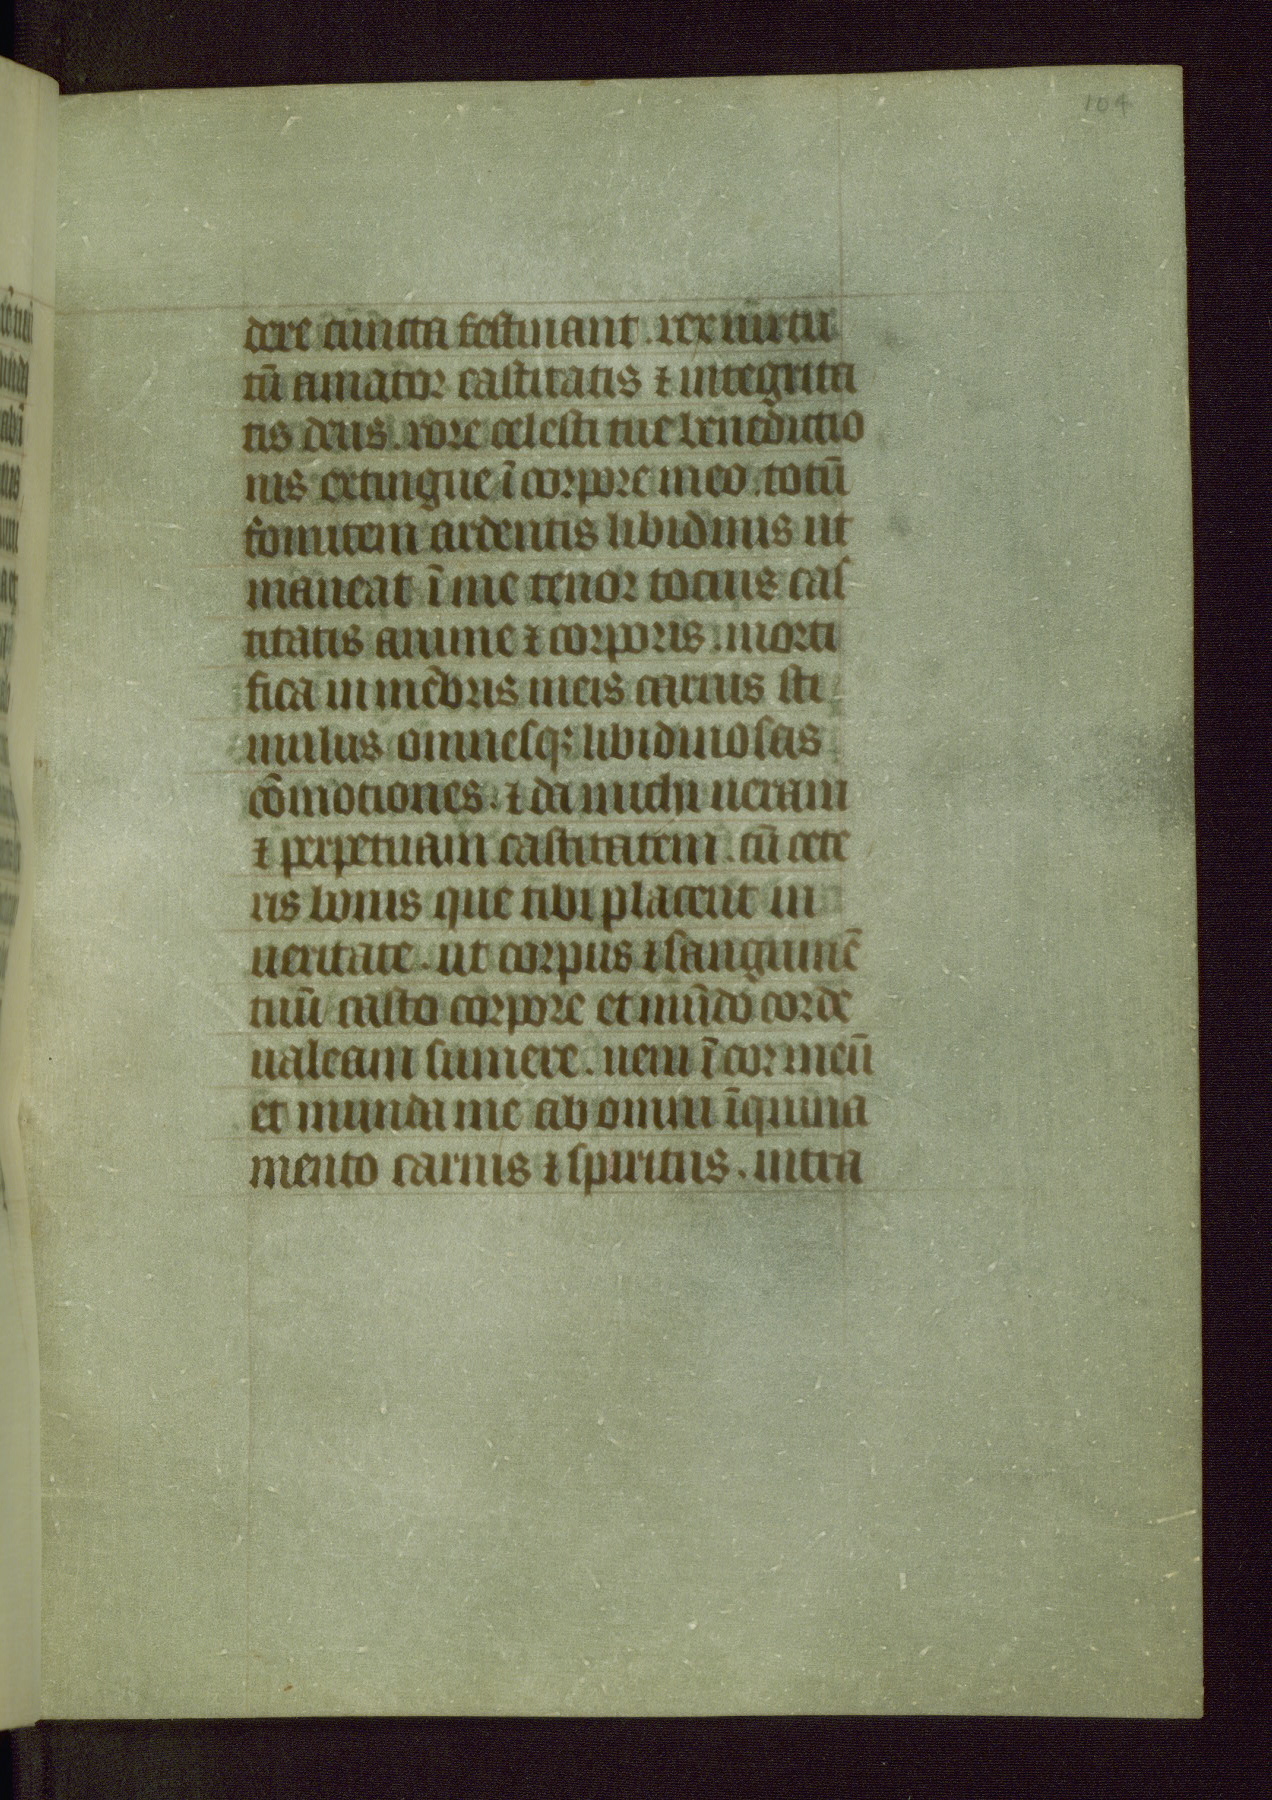 104
dere cuncta festinant. rex uirtu
tū amator castitatis ⁊ integrita
tis deus. rore celesti tue benedictio
nis extingue ī corpore meo. totū
fomitem ardentis libidinis ut
maneat ī me tenor tocius cas
titatis anime ⁊ corporis. morti
fica in mēbris meis carnis sti
mulus omnesqꝫ libidinosas
cōmotiones. ⁊ da michi ueram
⁊ perpetuam castitatem. cū cete
ris bonis que tibi placent in
ueritate. ut corpus ⁊ sanguinē
tuū casto corpore et mūdo corde
ualeam sumere. ueni ī cor meū
et munda me ab omni īquina
mento carnis ⁊ spiritus. intra